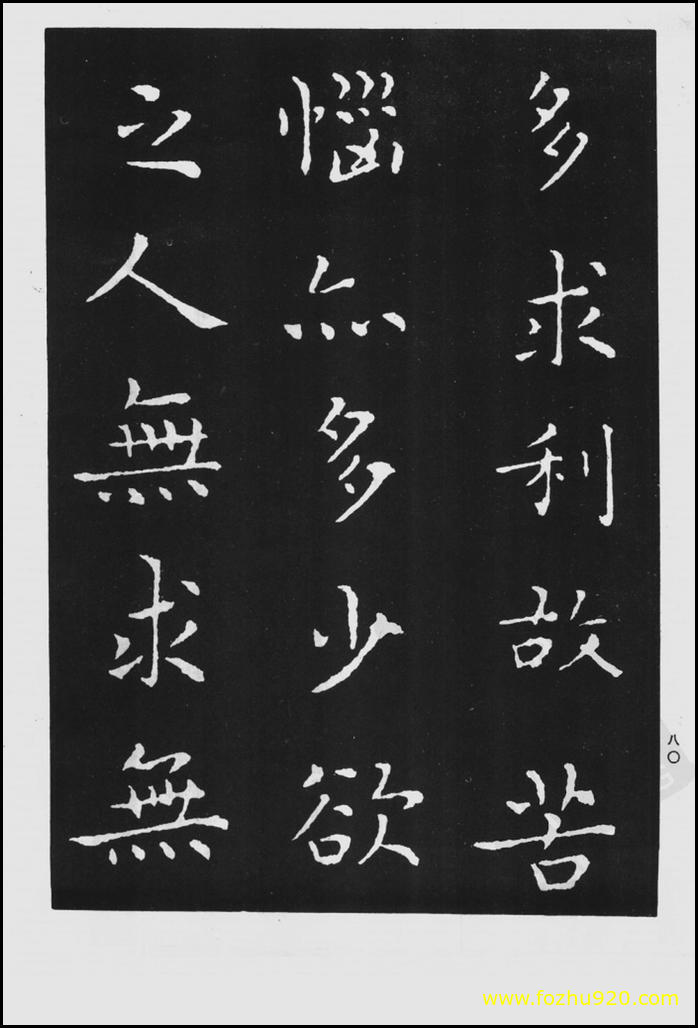 多求利故苦
惱亦多少欲
之人無求無
八〇
www.fozhu920.com